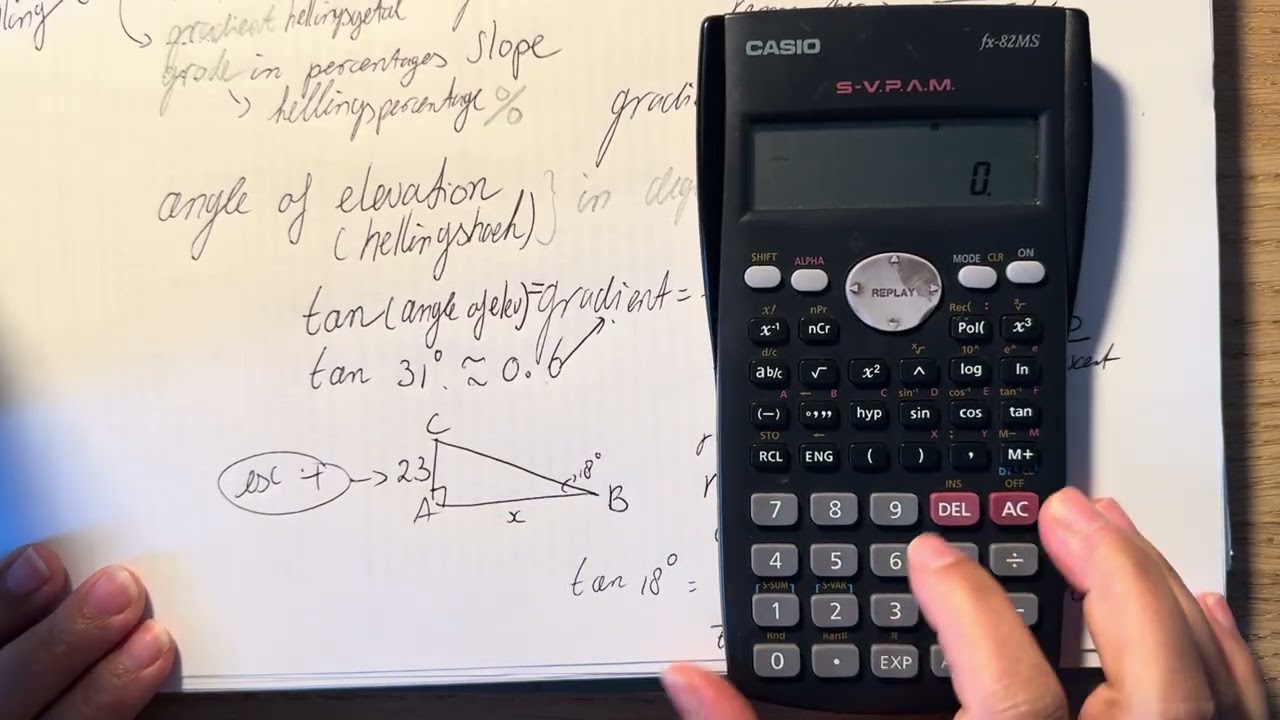 gradient hellingsgetal
grade in percentages slope
hellingspercentage %
angle of elevation
(hellingshoek)
} in
tan(angle of elev)=gradient =
tan 31° ≈ 0.6
C
23
18°
A
x
B
tan 18° =
CASIO fx-82MS
S-V.P.A.M.
0.
SHIFT ALPHA MODE CLR ON
REPLAY
x! nPr Rec( : ³√
x⁻¹ nCr Pol( x³
d/c ˣ√ 10ˣ eˣ e
ab/c √ x² ^ log ln
A ← B C sin⁻¹ D cos⁻¹ E tan⁻¹ F
(–) °,,, hyp sin cos tan
STO ← X ; Y M– M
RCL ENG ( ) , M+
INS OFF
7 8 9 DEL AC
4 5 6 ÷
S-SUM S-VAR
1 2 3
Rnd Ran# π
0 . EXP